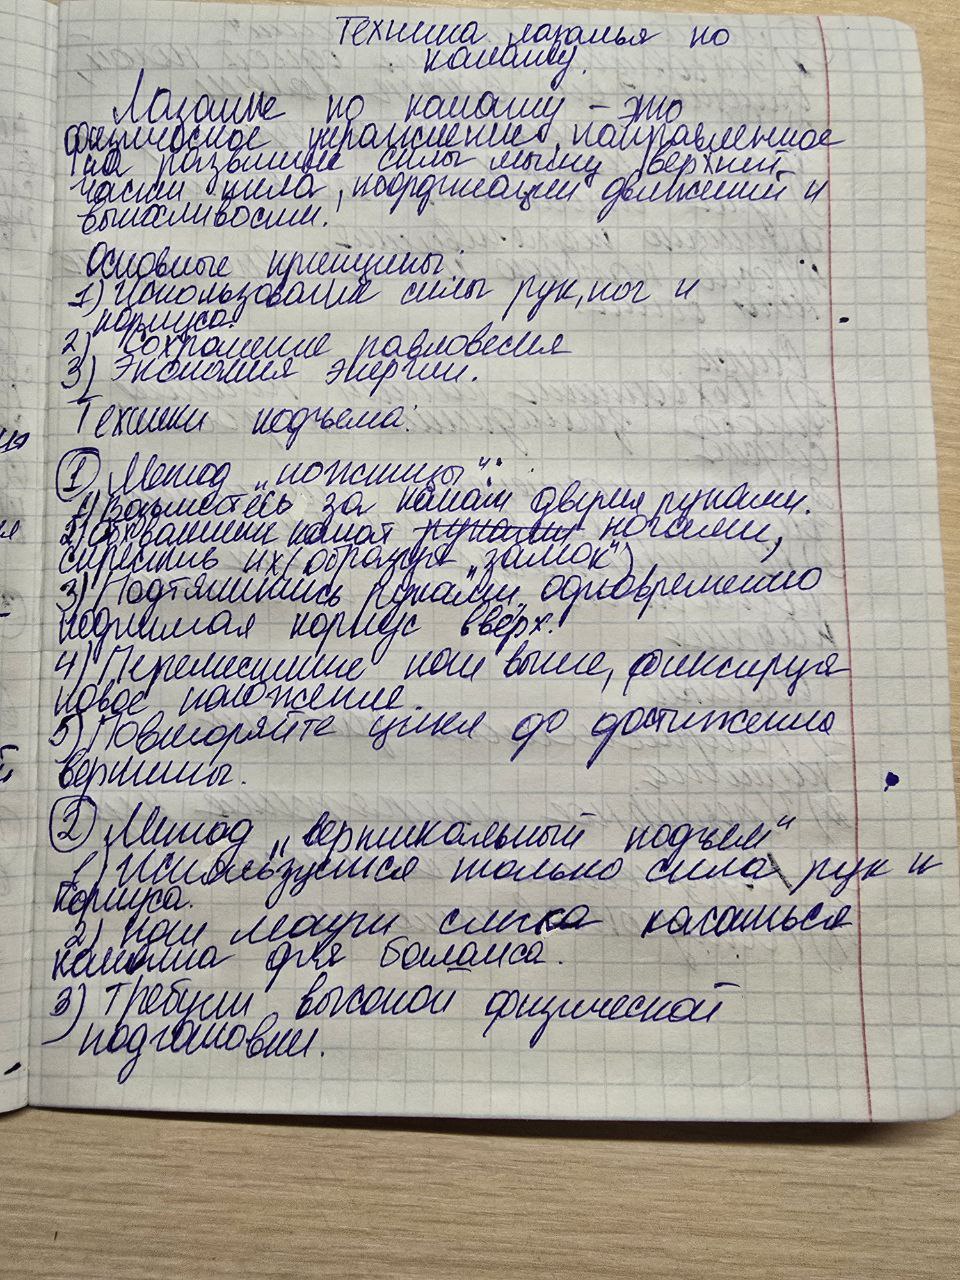 Техника лазанья по
канату.
Лазание по канату – это
физическое упражнение, направленное
на развитие силы мышц верхней
части тела, координации движений и
выносливости.
Основные принципы:
1) Использование силы рук, ног и
корпуса.
2) Сохранение равновесия
3) Экономия энергии.
Техники подъема:
1 Метод „ножницы“:
1) Возьмитесь за канат двумя руками.
2) Обхватите канат ногами,
скрестив их (образуя „замок“)
3) Подтянитесь руками, одновременно
поднимая корпус вверх.
4) Переместите ноги выше, фиксируя
новое положение.
5) Повторяйте цикл до достижения
вершины.
2 Метод „вертикальный подъем“
1) Используется только сила рук и
корпуса.
2) Ноги могут слегка касаться
каната для баланса.
3) Требует высокой физической
подготовки.